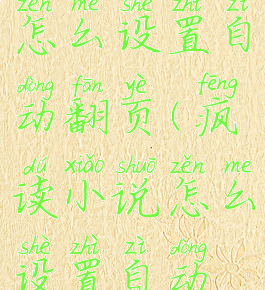 zěn me shè zhì zì
怎么设置自
dòng fān yè fēng
动翻页(疯
dú xiǎo shuō zěn me
读小说怎么
shè zhì zì dòng
设置自动